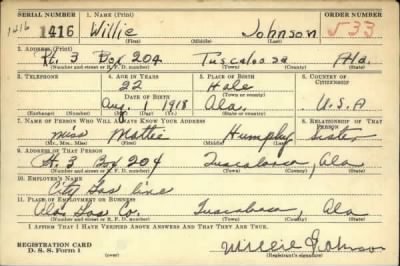 SERIAL NUMBER 1. NAME (Print) ORDER NUMBER
1416 1416 Willie Johnson 533
(First) (Middle) (Last)
2. ADDRESS (Print)
Rt. 3 Box 204 Tuscaloosa Ala.
(Number and street or R. F. D. number) (Town) (County) (State)
3. TELEPHONE 4. AGE IN YEARS 5. PLACE OF BIRTH 6. COUNTRY OF CITIZENSHIP
22 Hale
DATE OF BIRTH (Town or county)
Aug 1 1918 Ala. U.S.A
(Exchange) (Number) (Mo.) (Day) (Yr.) (State or country)
7. NAME OF PERSON WHO WILL ALWAYS KNOW YOUR ADDRESS 8. RELATIONSHIP OF THAT PERSON
Miss Mattie Sister
(Mr., Mrs., Miss) (First) (Middle) (Last)
9. ADDRESS OF THAT PERSON
Rt. 3 Box 204 Tuscaloosa, Ala
(Number and street or R. F. D. number) (Town) (County) (State)
10. EMPLOYER'S NAME
City Gas line
11. PLACE OF EMPLOYMENT OR BUSINESS
Ala Gas Co. Tuscaloosa, Ala
(Number and street or R. F. D. number) (Town) (County) (State)
I AFFIRM THAT I HAVE VERIFIED ABOVE ANSWERS AND THAT THEY ARE TRUE.
REGISTRATION CARD Willie Johnson
D. S. S. Form 1 (over) (Registrant's signature)